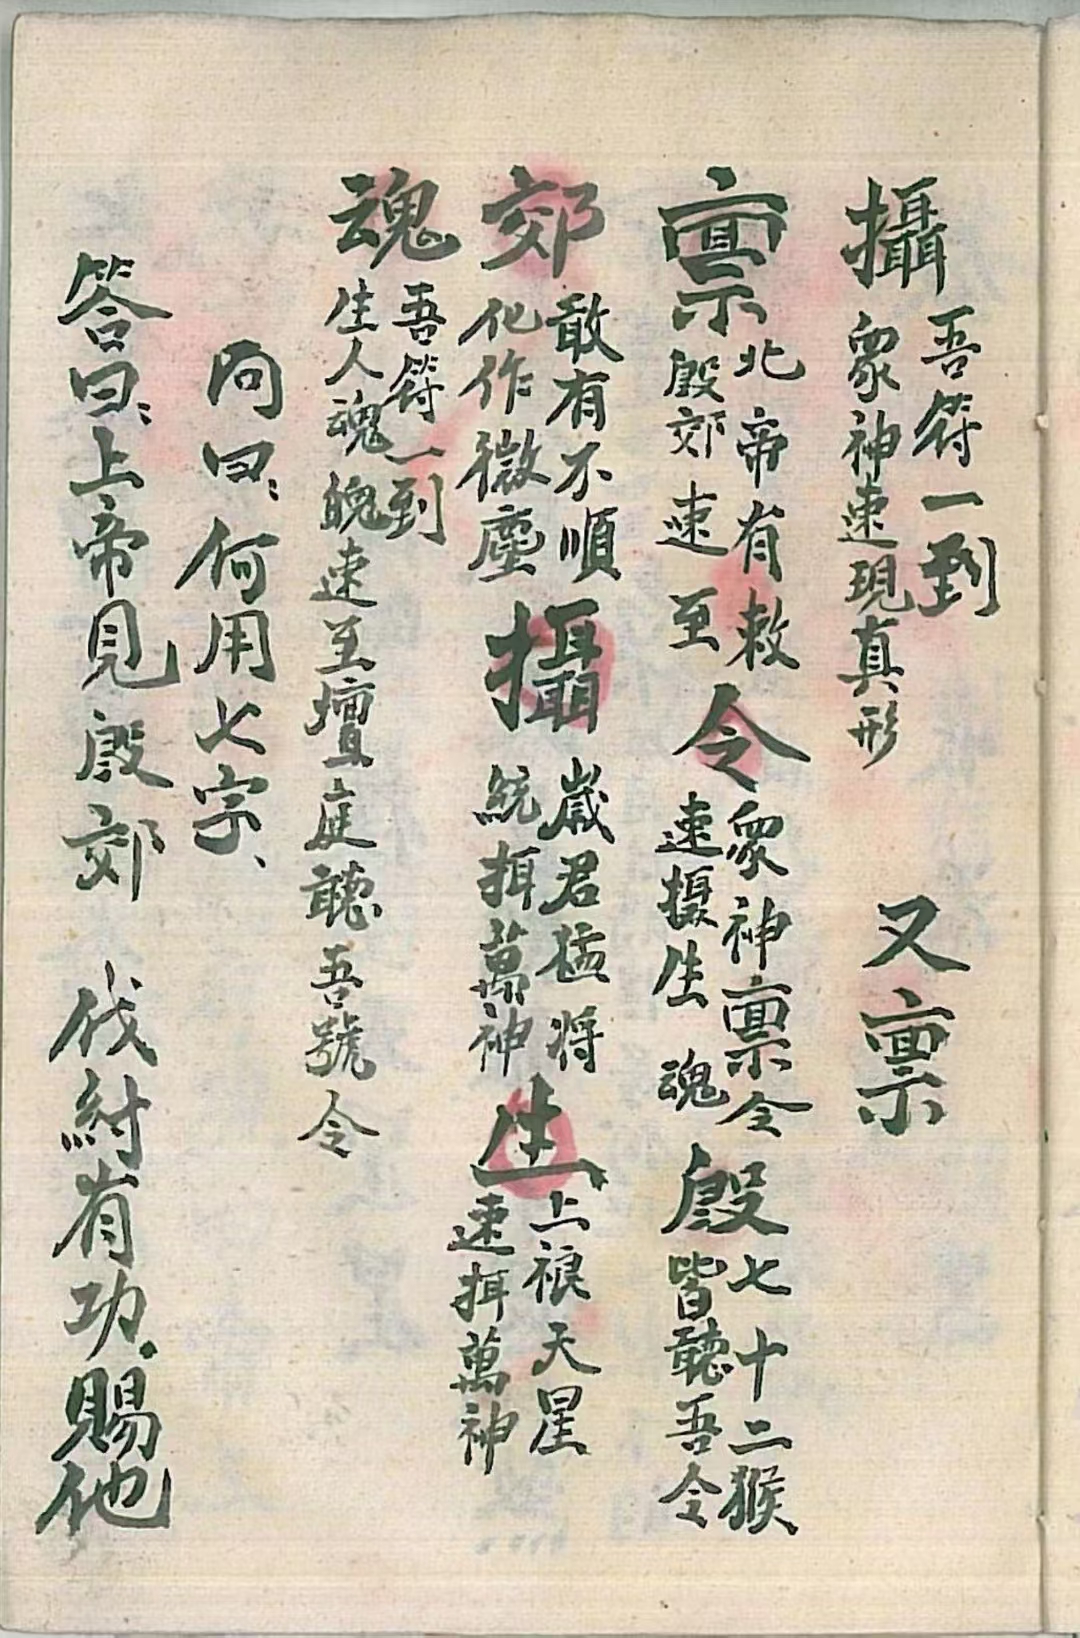 攝 吾符一到 衆神速現真形 又禀
禀 北帝有敕 殷郊速至 令 衆神禀令 速摄生魂 殷 七十二猴 皆聽吾令
郊 敢有不順 化作微塵 攝 歲君猛将 統挕萬神 生 上禓天星 速挕萬神
魂 吾符一到 生人魂魄速至壇庭聽吾號令
问曰、何用七字、
答曰、上帝見殷郊 伐紂有功、賜他